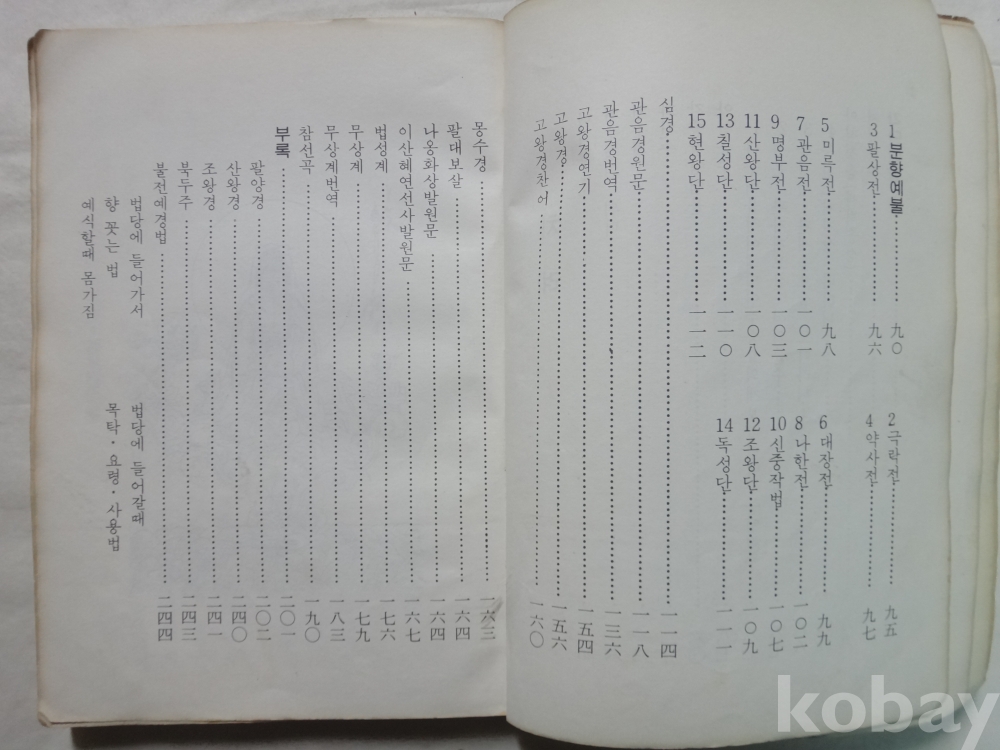 1 분향예불 …… 九〇 2 극락전 …… 九五
3 팔상전 …… 九六 4 약사전 …… 九七
5 미륵전 …… 九八 6 대장전 …… 九九
7 관음전 …… 一〇一 8 나한전 …… 一〇二
9 명부전 …… 一〇三 10 신중작법 …… 一〇七
11 산왕단 …… 一〇八 12 조왕단 …… 一〇九
13 칠성단 …… 一一〇 14 독성단 …… 一一一
15 현왕단 …… 一一二
심경 …… 一一四
관음경원문 …… 一一八
관음경번역 …… 一三六
고왕경연기 …… 一五四
고왕경 …… 一五六
고왕경찬어 …… 一六〇
몽수경 …… 一六三
팔대보살 …… 一六四
나옹화상발원문 …… 一六四
이산혜연선사발원문 …… 一六七
법성계 …… 一七六
무상계 …… 一七九
무상계번역 …… 一八三
참선곡 …… 一九〇
부록 …… 二〇一
팔양경 …… 二〇二
산왕경 …… 二四〇
조왕경 …… 二四一
북두주 …… 二四三
불전예경법 …… 二四四
법당에 들어가서 법당에 들어갈때
향 꽂는 법 목탁·요령·사용법
예식할때 몸가짐
kobay